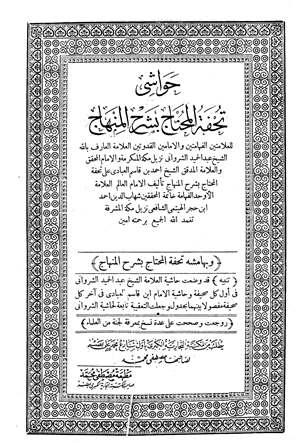 حواشي
تحفة المحتاج بشرح المنهاج
للعلامتين الفهامتين والإمامين القدوتين العلامة العارف بالله
الشيخ عبد الحميد الشرواني نزيل مكة المكرمة والإمام المحقق
والعلامة المدقق الشيخ أحمد بن قاسم العبادي على تحفة
المحتاج بشرح المنهاج تأليف الإمام العالم العلامة
الأوحد الفهامة خاتمة المحققين شهاب الدين أحمد
ابن حجر الهيتمي الشافعي نزيل مكة المشرفة
تغمد الله الجميع برحمته آمين
﴿وبهامشه تحفة المحتاج بشرح المنهاج﴾
﴿تنبيه﴾ قد وضعت حاشية العلامة الشيخ عبد الحميد الشرواني
في أول كل صحيفة وحاشية الإمام ابن قاسم العبادي في آخر كل
صحيفة مفصولا بينهما بجدول وجعلت التعقيبة تابعة لحاشية الشرواني
﴿روجعت وصححت على عدة نسخ بمعرفة لجنة من العلماء﴾
يطلب من المكتبة التجارية الكبرى بأول شارع محمد علي بمصر
لصاحبها مصطفى محمد
مطبعة مصطفى محمد